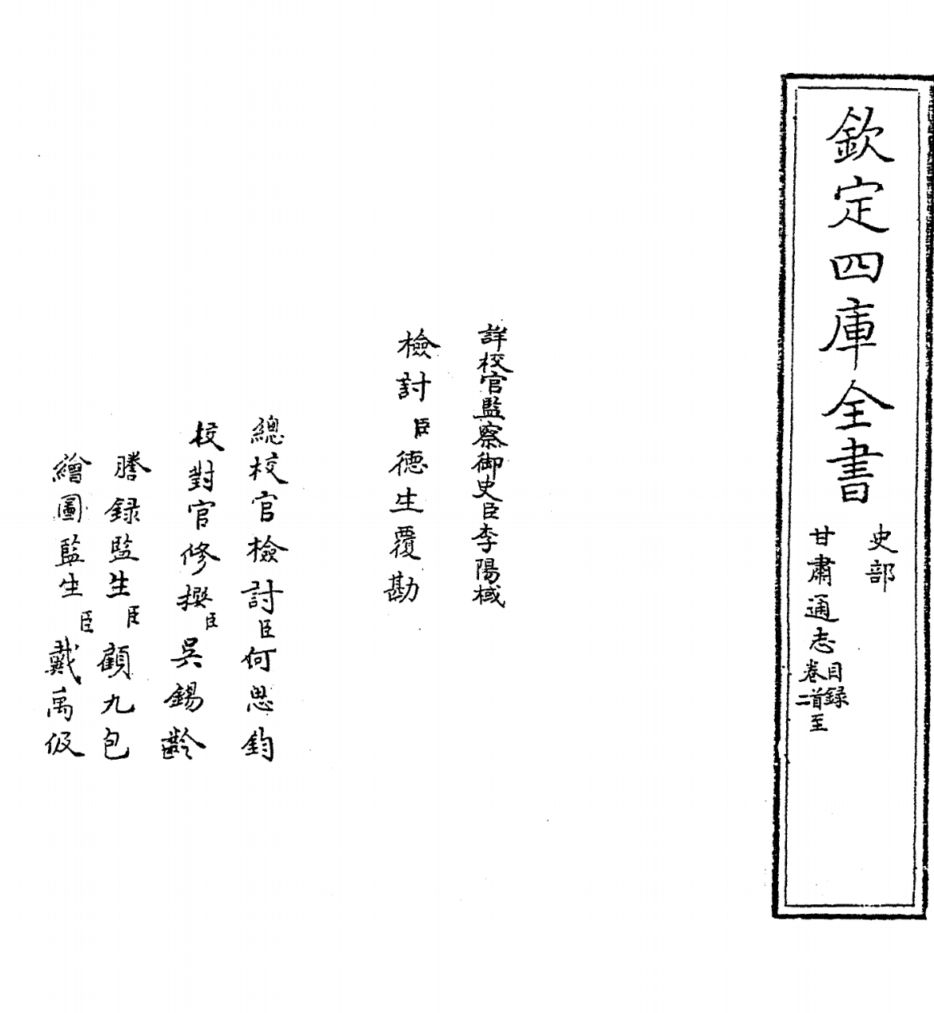 欽定四庫全書
史部
甘肅通志
目録
卷首至
二
詳校官監察御史臣李陽棫
檢討臣德生覆勘
總校官檢討臣何思鈞
校對官修撰臣吳錫齡
謄録監生臣顧九包
繪圖監生臣戴禹伋